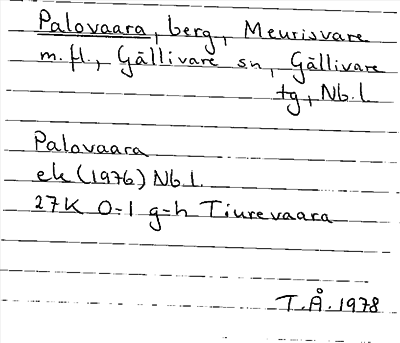 Palovaara, berg, Meurisvare
m.fl., Gällivare sn, Gällivare
tg, Nb.l.
Palovaara
ek (1976) Nb.l.
27K 0-1 g-h Tiurevaara
T.Å. 1978